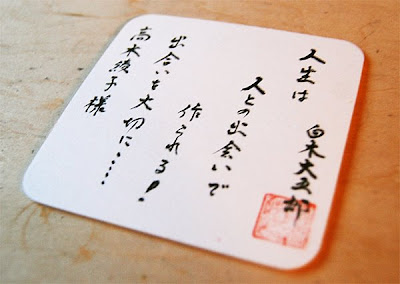 人生は
人との出会いで
作られる!
出合いを大切に……
高木綾子様
白木大五郎